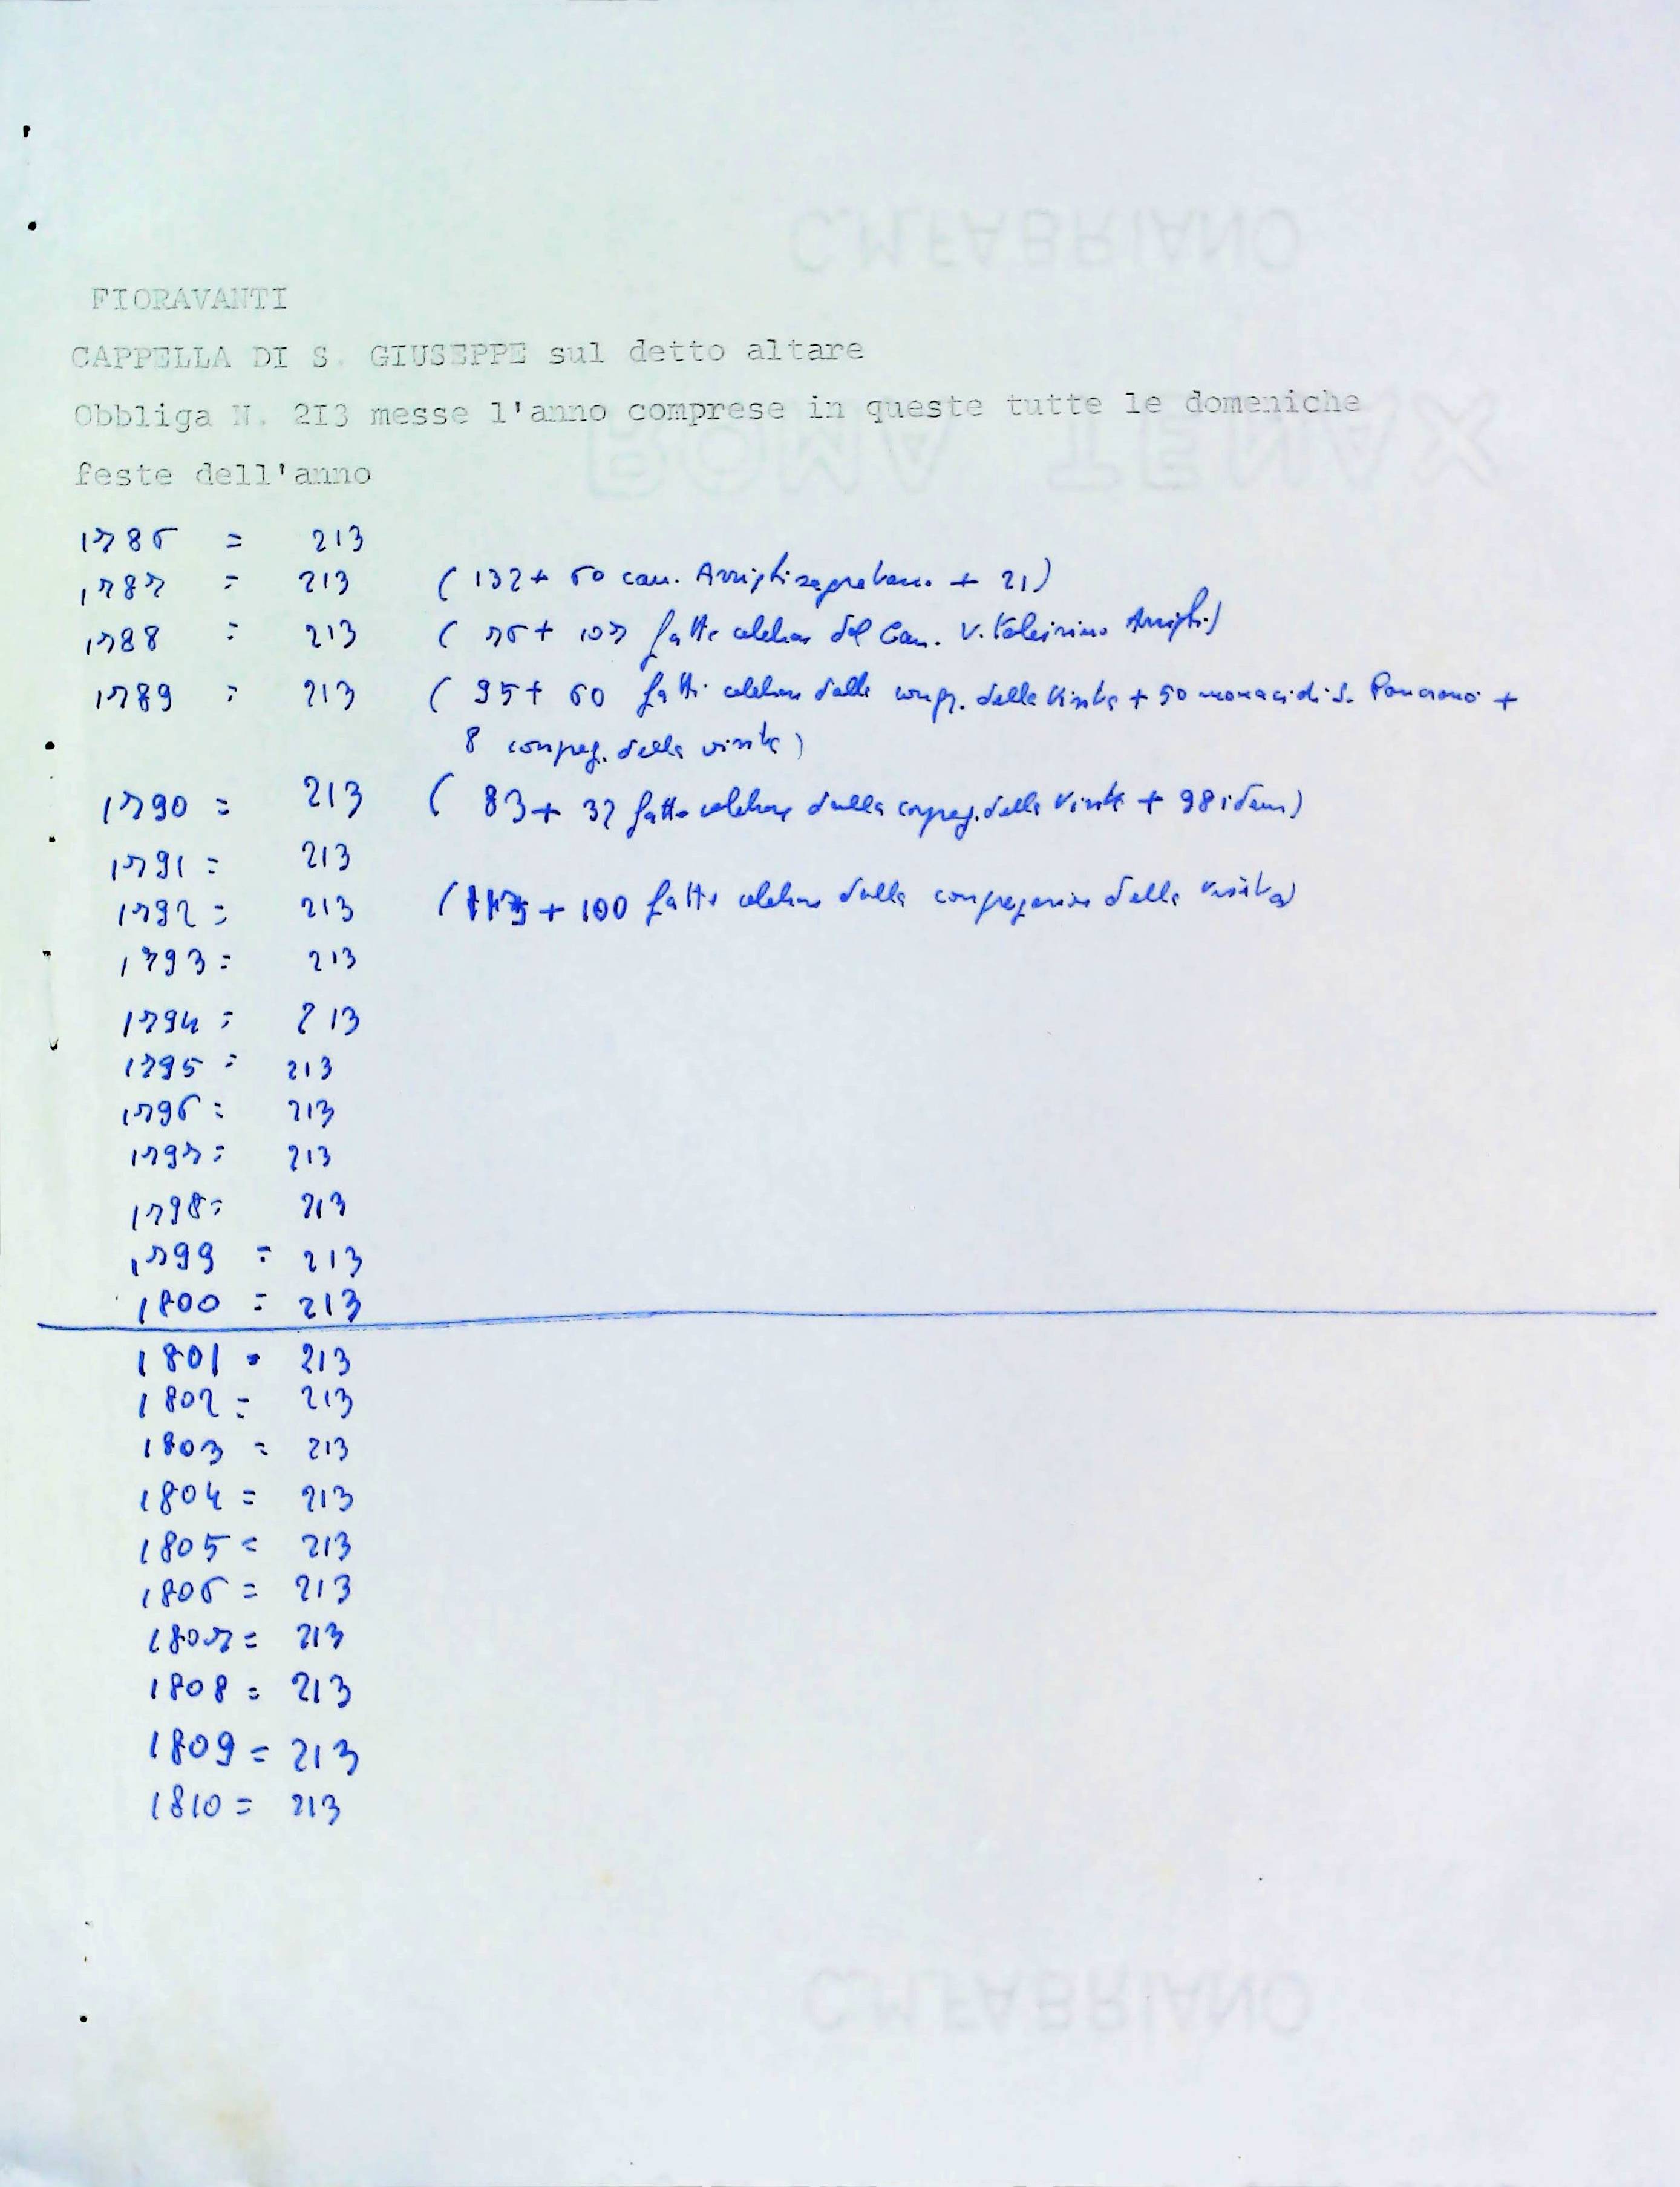 FIORAVANTI
CAPPELLA DI S. GIUSEPPE sul detto altare
Obbliga N. 2I3 messe l'anno comprese in queste tutte le domeniche
feste dell'anno
1786 = 213
1787 = 213 (132 + 60 can. Arrighi sagrestano + 21)
1788 = 213 ( 76 + 107 fatte celebrare dal Can. V. Arrighi)
1789 = 213 ( 95 + 60 fatti celebrare dalla congr. della Visita + 50 monaci di S. +
8 congreg. della visita)
1790 = 213 ( 83 + 32 fatte celebrare dalla congreg. della Visita + 98 idem)
1791 = 213
1792 = 213 ( + 100 fatte celebrare dalla congregazione della visita)
1793 = 213
1794 = 213
1795 = 213
1796 = 213
1797 = 213
1798 = 213
1799 = 213
1800 = 213
1801 = 213
1802 = 213
1803 = 213
1804 = 213
1805 = 213
1806 = 213
1807 = 213
1808 = 213
1809 = 213
1810 = 213
C.M.FABRIANO
ROMA TENAX
C.M.FABRIANO